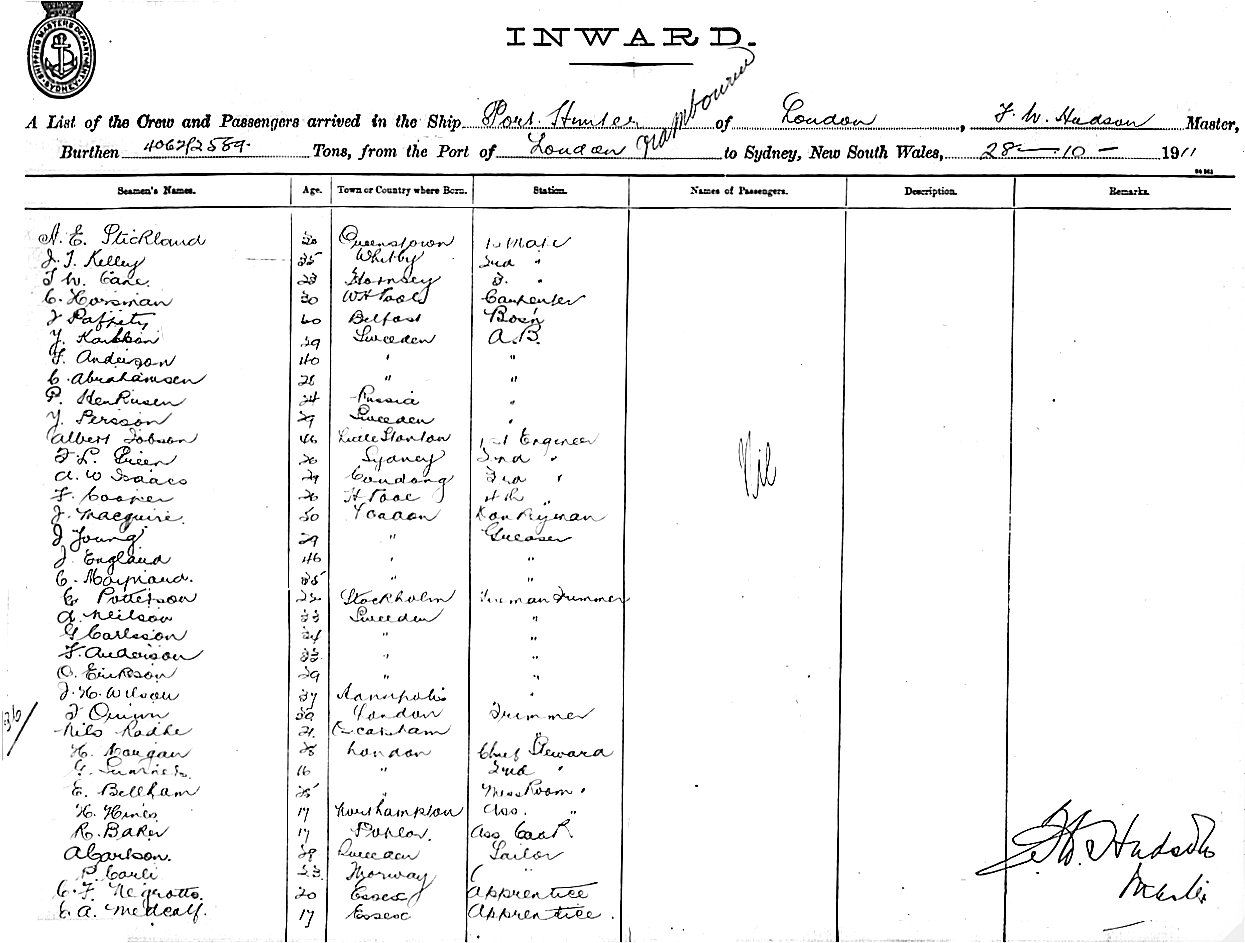 SHIPPING MASTERS DEPARTMENT SYDNEY
INWARD.
A List of the Crew and Passengers arrived in the Ship Port Hunter of London, F. W. Hudson Master,
Burthen 4062/2589 Tons, from the Port of London to Sydney, New South Wales, 28-10- 1911
Seamen's Names. Age. Town or Country where Born. Station. Names of Passengers. Description. Remarks.
A. E. Stickland Queenstown 1st Mate
J. T. Kelley 35 Whitby 2nd "
T W. Cane. 23 Hornsey 3. "
C. Horsman 30 Carpenter
60 Belfast Bos'n
29 Sweeden A.B.
F. Anderson 40 " "
C. Abrahamsen 28 " "
P. Henrusen 24 Russia "
Y. Persson 29 Sweeden "
Albert Jobson 46 Little Stanton 1st Engineer
26 Sydney 2nd "
A. W Isaacs 29 3rd "
F. Cooper 26 4th "
J. Macguire. 50 London Donkeyman
J Young 29 " Greaser
J. England 46 " "
C. Maynard. 35 " "
E. Potterson 22 Stockholm Fireman Trimmer
A. Neilson 33 Sweeden "
G Carlsson 24 " "
F. Anderson 33 " "
O. Erickson 29 " "
J. H. Wilson 37 Annapolis "
J Quinn 39 London Trimmer
Nils Radhe 21
H. Mangan 28 London Chief Steward
G. 16 " 2nd "
E. Bellham 25 " Mess Room "
H. Hines 17 Northampton Ass. "
R. Baker 17 Poplar. Ass Cook
A Carlson. 28 Sweeden Sailor
P. Carli 23 Norway
C. F. Negrotto. 20 Essex Apprentice
E. A. Medcalf. 17 Essex Apprentice.
Nil
36/
F. W. Hudson
Master